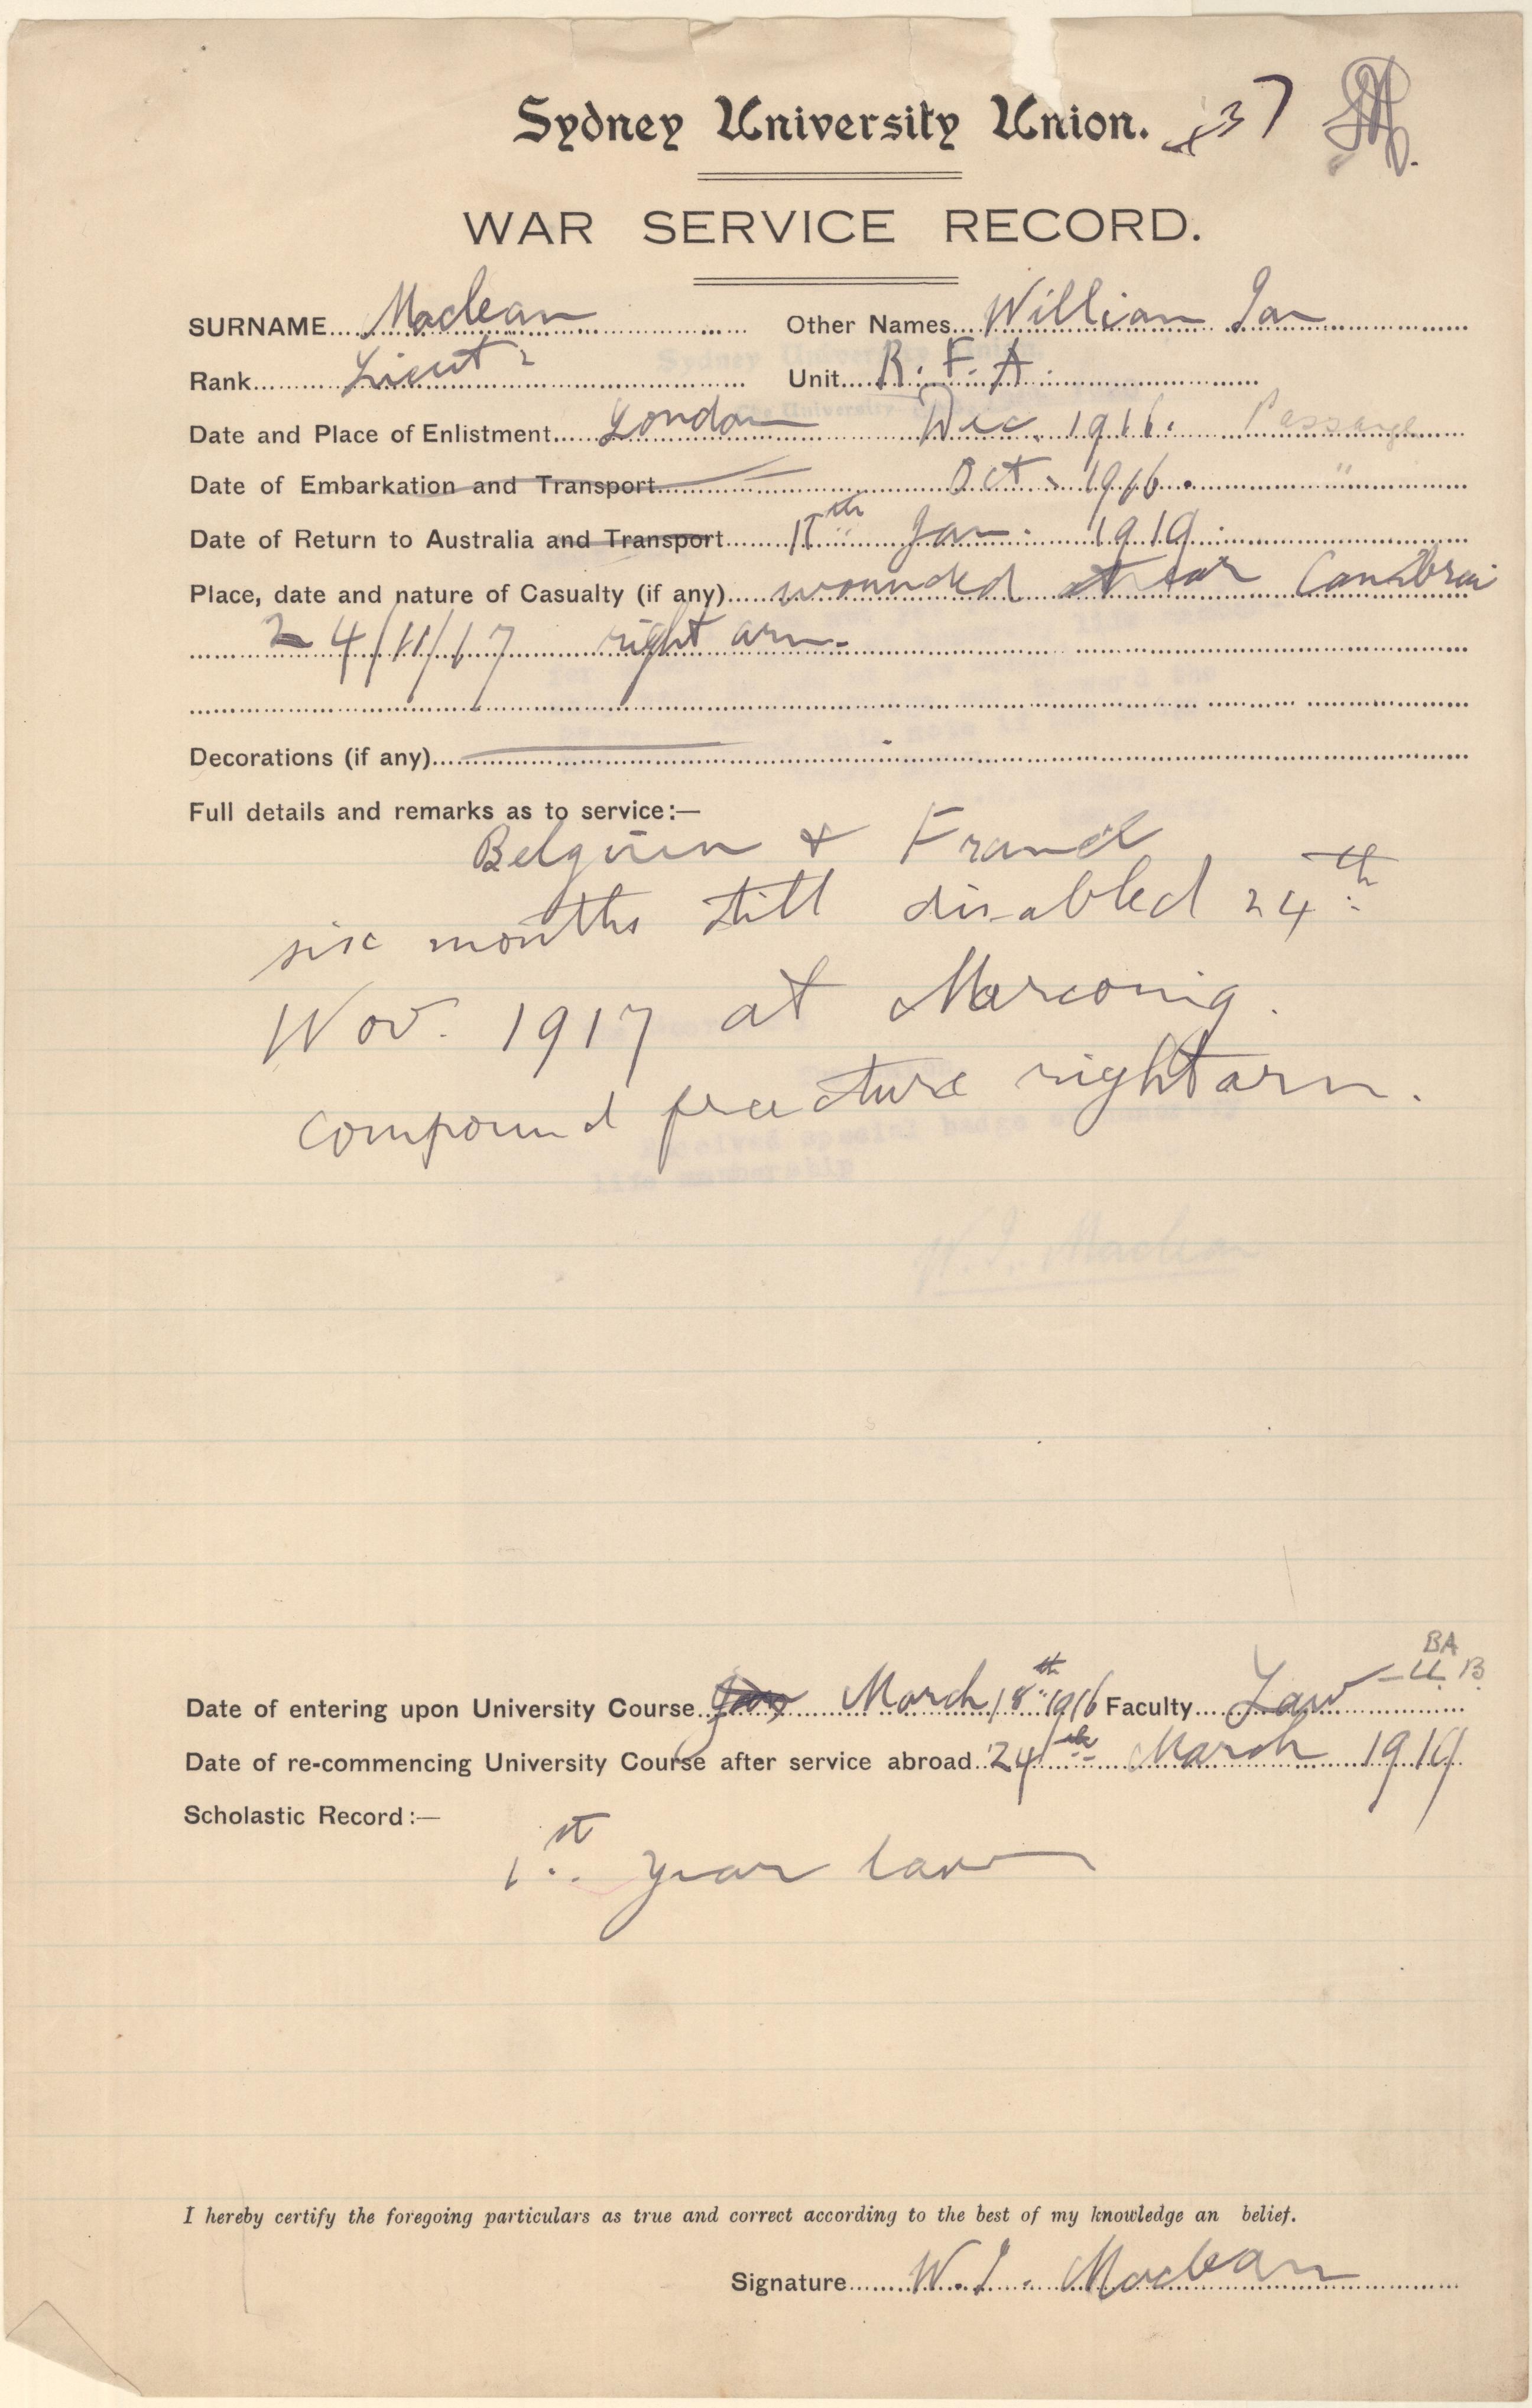 Sydney University Union. 37
WAR SERVICE RECORD.
SURNAME Maclean Other Names William Ian
Rank Lieut Unit R. F. A.
Date and Place of Enlistment London Dec. 1916. Passage
Date of Embarkation and Transport Oct. 1916. "
Date of Return to Australia and Transport 17th Jan. 1919.
Place, date and nature of Casualty (if any) wounded Cambrai
24/11/17 right arm.
Decorations (if any)
Full details and remarks as to service:—
Belguim & France
six months till disabled 24th
Nov. 1917 at Marcoing.
compound fracture right arm.
received special badge
life membership
W. I. Maclean
BA
Date of entering upon University Course March 18th 1916 Faculty Law — LL. B
Date of re-commencing University Course after service abroad 24th March 1919
Scholastic Record:—
1st year law
I hereby certify the foregoing particulars as true and correct according to the best of my knowledge an belief.
Signature W. I. Maclean